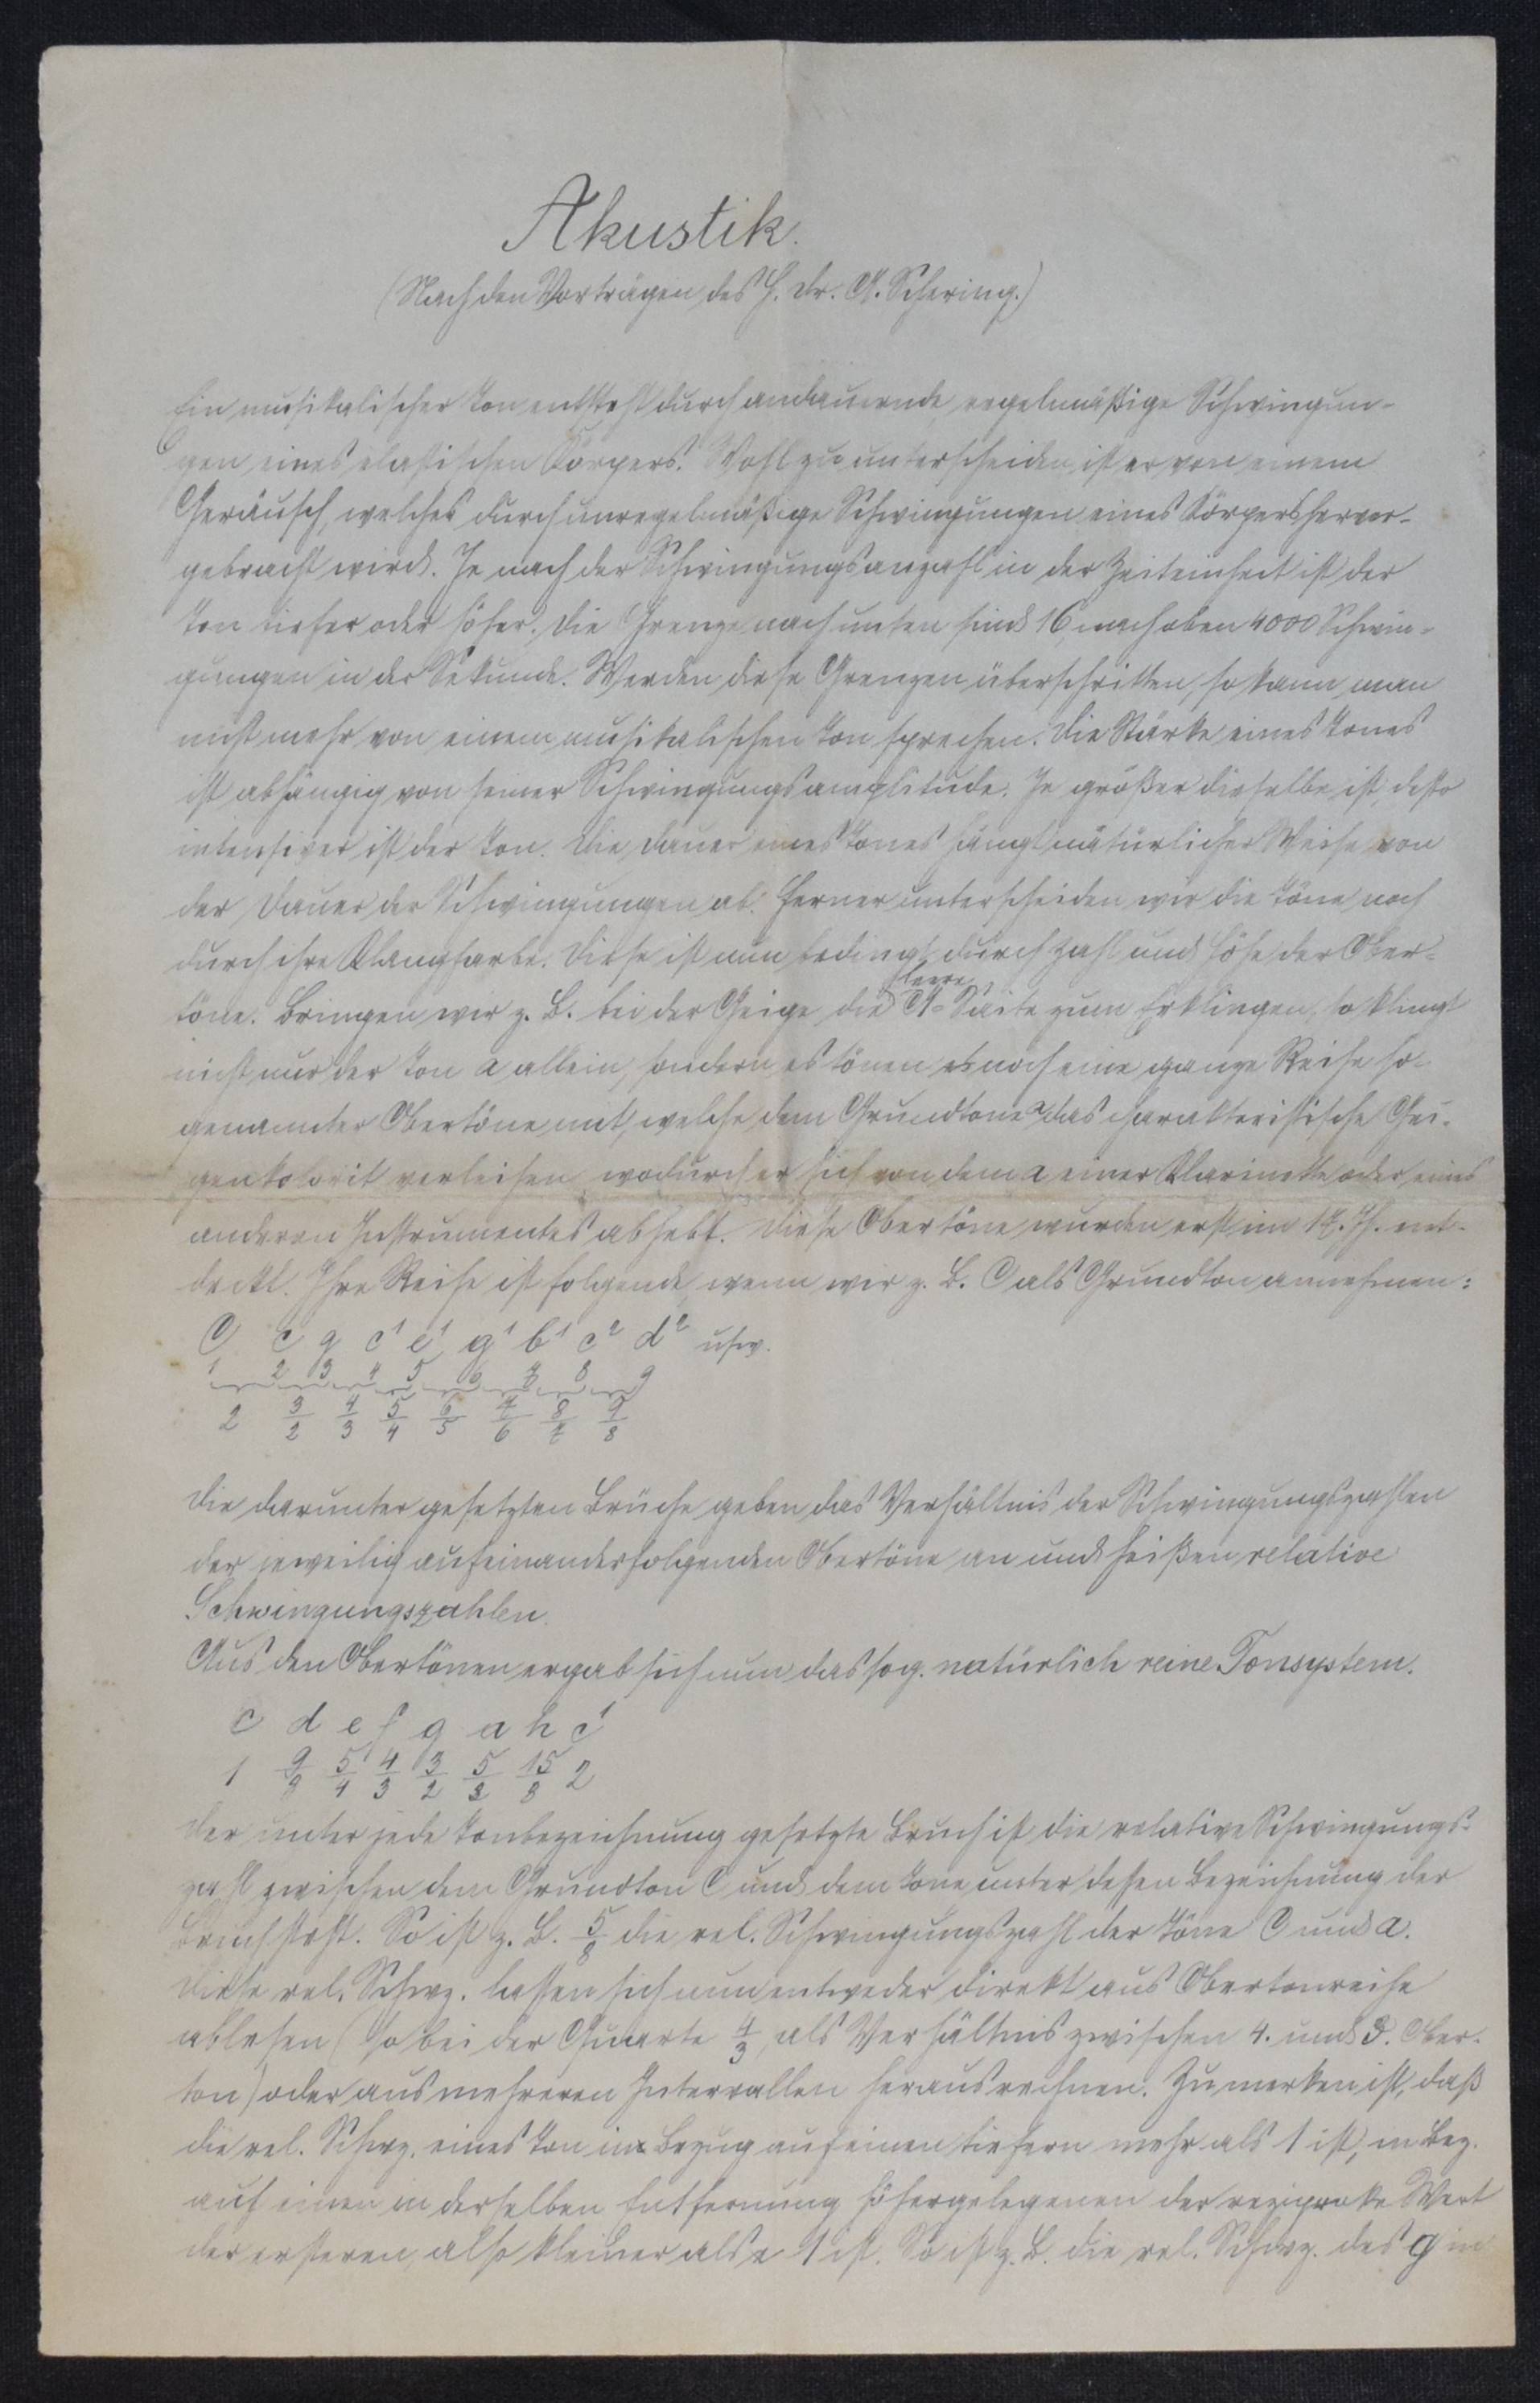 Akustik.
(Nach den Vorträgen des H. Dr. A. Schering.)
Ein musikalischer Ton entsteht durch andauernde, regelmäßige Schwingun-
gen eines elastischen Körpers. Wohl zu unterscheiden ist er von einem
Geräusch, welches durch unregelmäßige Schwingungen eines Körpers hervor-
gebracht wird. Je nach der Schwingungsanzahl in der Zeiteinheit ist der
Ton tiefer oder höher. Die Grenze nach unten sind 16, nach oben 4000 Schwin-
gungen in der Sekunde. Werden diese Grenzen überschritten, so kann man
nicht mehr von einem musikalischen Ton sprechen. Die Stärke eines Tones
ist abhängig von seiner Schwingungsamplitude. Je größer dieselbe ist, desto
intensiver ist der Ton. Die Dauer eines Tones hängt natürlicher Weise von
der Dauer der Schwingungen ab. Ferner unterscheiden wir die Töne noch
durch ihre Klangfarbe. Diese ist nun bedingt durch Zahl und Höhe der Ober-
töne. Bringen wir z. B. bei der Geige die leere A-Saite zum Erklingen, so klingt
nicht nur der Ton a allein, sondern es tönen es noch eine ganze Reihe so-
genannter Obertöne mit, welche dem Grundtone a das charakteristische Gei-
genkolorit verleihen, wodurch er sich von dem a einer Klarinette oder eines
anderen Instrumentes abhebt. Diese Obertöne wurden erst im 17. Jh. ent-
deckt. Ihre Reihe ist folgende, wenn wir z. B. C als Grundton annehmen:
C c g c¹ e¹ g¹ b¹ c² d² usw.
1 2 3 4 5 6 7 8 9
2 3/2 4/3 5/4 6/5 7/6 8/7 9/8
Die darunter gesetzten Brüche geben das Verhältnis der Schwingungszahlen
der jeweilig aufeinanderfolgenden Obertöne an und heißen relative
Schwingungszahlen.
Aus den Obertönen ergab sich nun das sog. natürlich reine Tonsystem.
c d e f g a h c¹
1 9/8 5/4 4/3 3/2 5/3 15/8 2
Der unter jede Tonbezeichnung gesetzte Bruch ist die relative Schwingungs-
zahl zwischen dem Grundton C und dem Tone unter dessen Bezeichnung der
Bruch steht. So ist z. B. 5/3 die rel. Schwingungszahl der Töne C und a.
Diese rel. Schwz. lassen sich nun entweder direkt aus Obertonreihe
ablesen (so bei der Quarte 4/3 als Verhältnis zwischen 4. und 3. Ober-
ton) oder aus mehreren Intervallen herausrechnen. Zu merken ist, daß
die rel. Schwz. eines Ton in Bezug auf einen tiefern mehr als 1 ist, in Bez.
auf einen in derselben Entfernung höhergelegenen der reziproke Wert
der ersteren, also kleiner als 1 ist. So ist z. B. die rel. Schwz. des g in